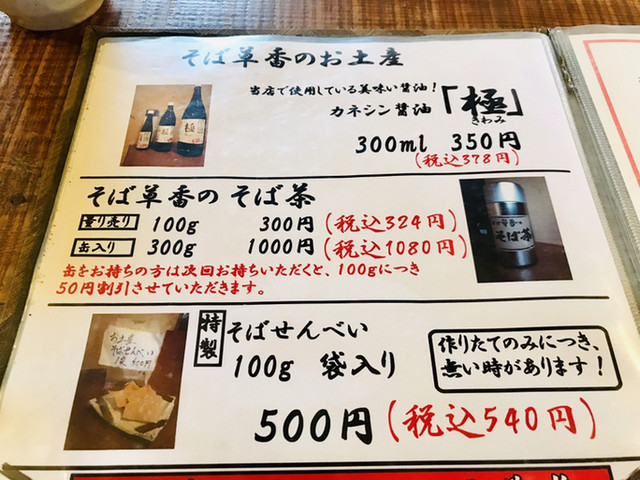 そば草香のお土産
当店で使用している美味い醤油！
カネシン醤油「極」
きわみ
300ml 350円
(税込378円)
極
そば草香の そば茶
量り売り 100g 300円(税込324円)
缶入り 300g 1000円(税込1080円)
缶をお持ちの方は次回お持ちいただくと、100gにつき
50円割引させていただきます。
そば茶
特製 そばせんべい
100g 袋入り
作りたてのみにつき、
無い時があります！
500円(税込540円)
お土産
そばせんべい
1袋 500円